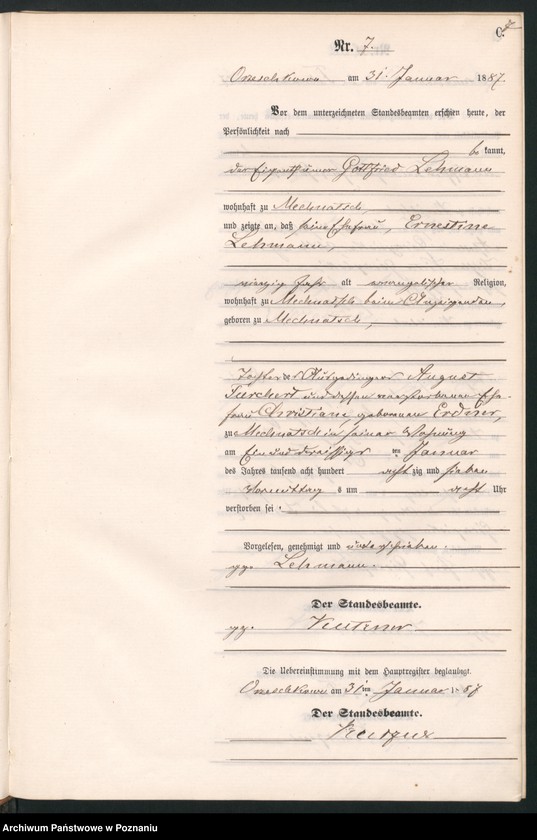 C.
7
Nr. 7.
Orzeschkowo am 31. Januar 1887.
Vor dem unterzeichneten Standesbeamten erschien heute, der
Persönlichkeit nach
bekannt,
der Eigenthümer Gottfried Lehmann
wohnhaft zu Mechnatsch
und zeigte an, daß seine Ehefrau, Ernestine
Lehmann,
vierzig Jahr alt evangelischer Religion,
wohnhaft zu Mechnatsch beim Anzeigenden,
geboren zu Mechnatsch,
Tochter der Ausgedinger August
und dessen verstorbenen Ehe-
frau Christiane, geborenen Erdener,
zu Mechnatsch in seiner Wohnung
am Einunddreissigsten Januar
des Jahres tausend acht hundert achtzig und sieben
Vormittags um acht Uhr
verstorben sei.
Vorgelesen, genehmigt und unterschrieben.
gez. Lehmann.
Der Standesbeamte.
gez.
Die Uebereinstimmung mit dem Hauptregister beglaubigt.
Orzeschkowo am 31ten Januar 1887
Der Standesbeamte.
Archiwum Państwowe w Poznaniu